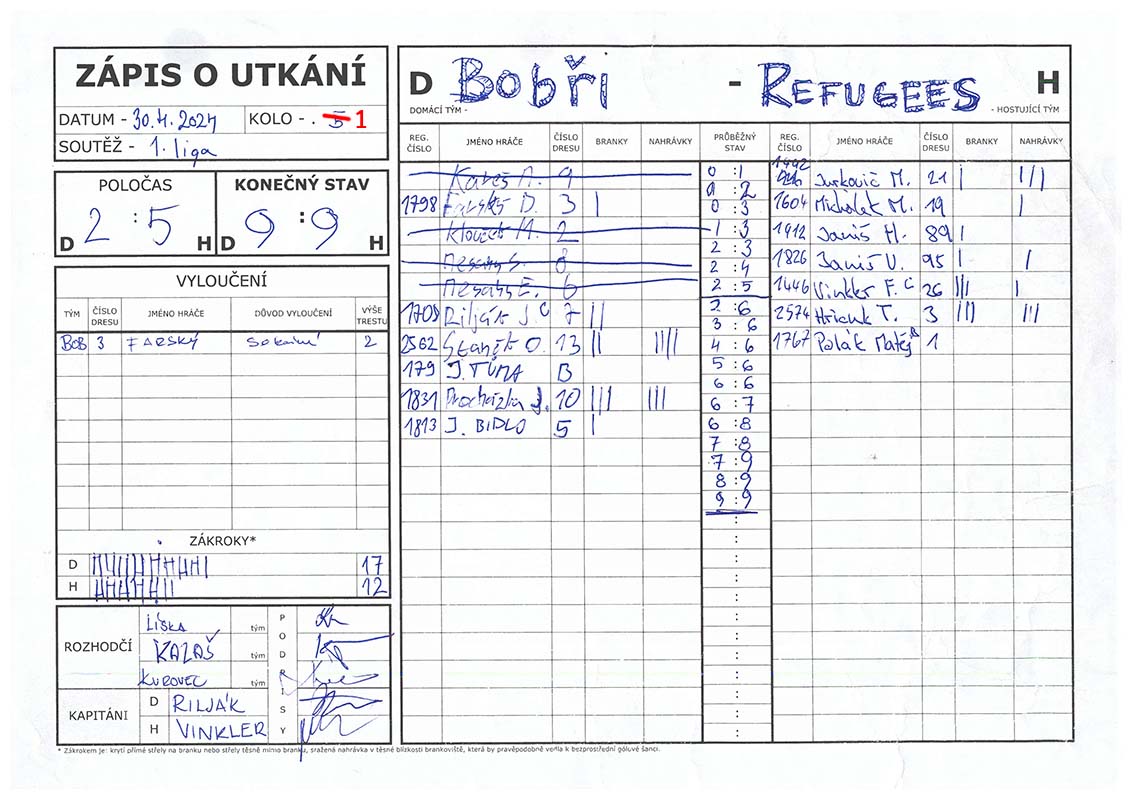 ZÁPIS O UTKÁNÍ
DATUM - 30.4.2024 KOLO - . 5 1
SOUTĚŽ - 1. liga
POLOČAS
2 : 5
D H
KONEČNÝ STAV
9 : 9
D H
VYLOUČENÍ
TÝM ČÍSLO DRESU JMÉNO HRÁČE DŮVOD VYLOUČENÍ VÝŠE TRESTU
BOB 3 FARSKÝ 2
ZÁKROKY*
D 17
H 12
ROZHODČÍ
LÍŠKA tým
KAZAŠ tým
KUROVEC tým
PODPISY
KAPITÁNI
D RILJÁK
H VINKLER
D BOBŘI - REFUGEES H
DOMÁCÍ TÝM - - HOSTUJÍCÍ TÝM
REG. ČÍSLO JMÉNO HRÁČE ČÍSLO DRESU BRANKY NAHRÁVKY
Kareš M. 9
1798 Farský D. 3 |
Klouček M. 2
8
6
1708 Riljak J C 7 ||
2562 Staněk O. 13 || ||||
179 J. TŮMA B
1831 Procházka J. 10 ||| |||
1813 J. BIDLO 5 |
PRŮBĚŽNÝ STAV
0 : 1
0 : 2
0 : 3
1 : 3
2 : 3
2 : 4
2 : 5
2 : 6
3 : 6
4 : 6
5 : 6
6 : 6
6 : 7
6 : 8
7 : 8
7 : 9
8 : 9
9 : 9
REG. ČÍSLO JMÉNO HRÁČE ČÍSLO DRESU BRANKY NAHRÁVKY
1492 Jurkovič M. 21 | |||
1604 Michalek M. 19 |
1912 Janiš M. 89 |
1826 Janiš V. 95 | |
1446 Vinkler F. C 26 ||| |
2574 T. 3 ||| |||
1767 Polák Matěj B 1
* Zákrokem je: krytí přímé střely na branku nebo střely těsně mimo branku, sražená nahrávka v těsné blízkosti brankoviště, která by pravěpodobně vedla k bezprostřední gólové šanci.